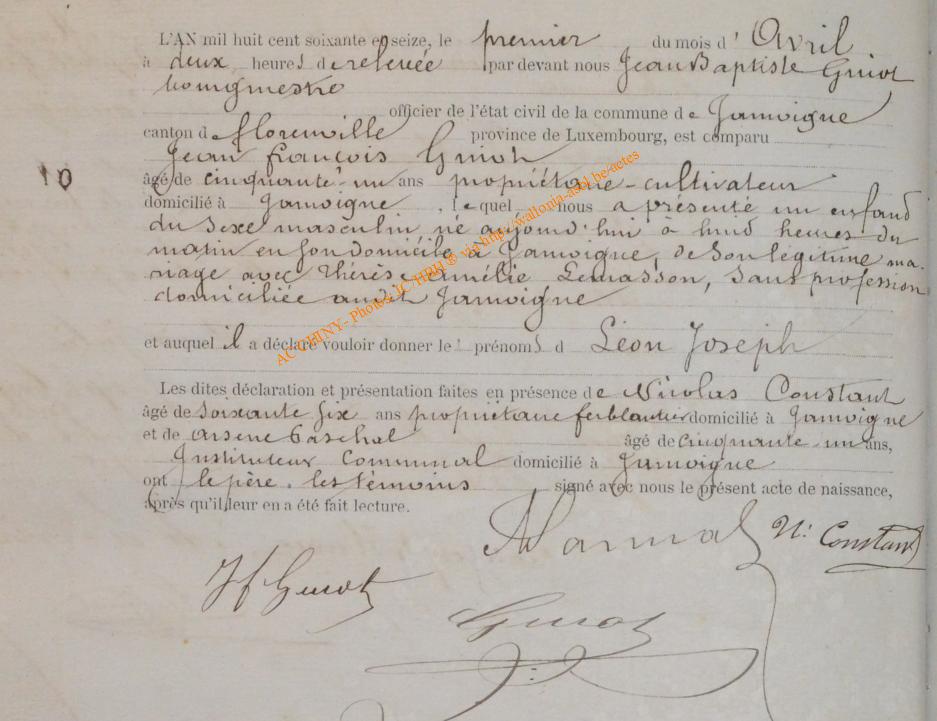 L'AN mil huit cent soixante et seize, le premier du mois d' Avril
à deux heures de relevée par devant nous Jean Baptiste Guiot
bourgmestre
officier de l'état civil de la commune de Jamoigne
canton de florenville province de Luxembourg, est comparu
Jean françois Guiot
10
âgé de cinquante-un ans propriétaire-cultivateur
domicilié à Jamoigne, lequel nous a présenté un enfant
du sexe masculin né aujourd'hui à huit heures du
matin en son domicile à Jamoigne, de son légitime ma-
riage avec Thérèse Amélie Lemasson, sans profession
domiciliée audit Jamoigne
et auquel il a déclaré vouloir donner les prénoms d Léon Joseph
Les dites déclaration et présentation faites en présence de Nicolas Constant
âgé de soixante six ans propriétaire ferblantier domicilié à Jamoigne
et de arsene Paschal âgé de cinquante-un ans,
Instituteur Communal domicilié à Jamoigne
ont le père. les témoins signé avec nous le présent acte de naissance,
après qu'il leur en a été fait lecture.
N: Constant
Jf Guiot
Guiot
AC CHINY- Photos IC HBH ® via http://wallonia-asbl.be/actes